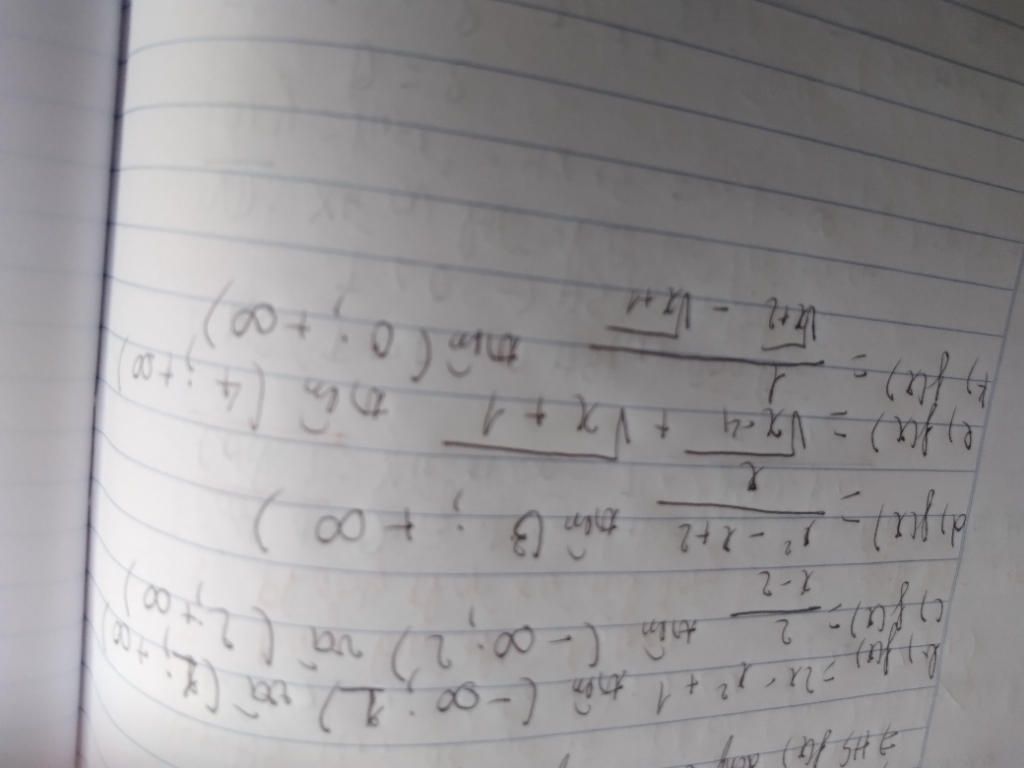 ⇒ HS f(x) đồng
b) f(x) = 2x - x² + 1 trên (-∞; 1) và (1; +∞)
c) f(x) = 2/(x-2) trên (-∞; 2) và (2; +∞)
d) f(x) = (x² - x + 2)/x trên (3; +∞)
e) f(x) = √(x-4) + √(x+1) trên (4; +∞)
f) f(x) = 1/(√(x+2) - √(x+1)) trên (0; +∞)